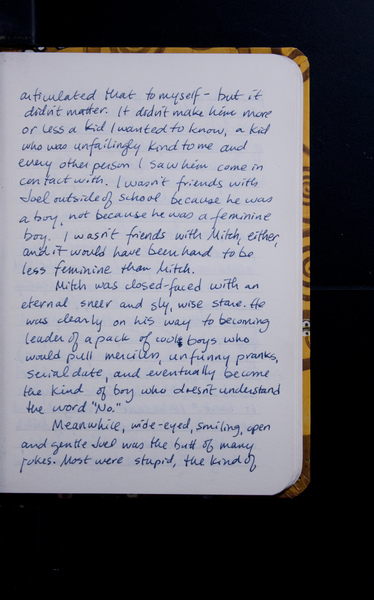 articulated that to myself - but it
didn't matter. It didn't make him more
or less a kid I wanted to know, a kid
who was unfailingly kind to me and
every other person I saw him come in
contact with. I wasn't friends with
Joel outside of school because he was
a boy, not because he was a feminine
boy. I wasn't friends with Mitch, either,
and it would have been hard to be
less feminine than Mitch.
Mitch was closed-faced with an
eternal sneer and sly, wise stare. He
was clearly on his way to becoming
leader of a pack of boys who
would pull merciless, unfunny pranks,
serial date, and eventually become
the kind of boy who doesn't understand
the word "No."
Meanwhile, wide-eyed, smiling, open
and gentle Joel was the butt of many
jokes. Most were stupid, the kind of